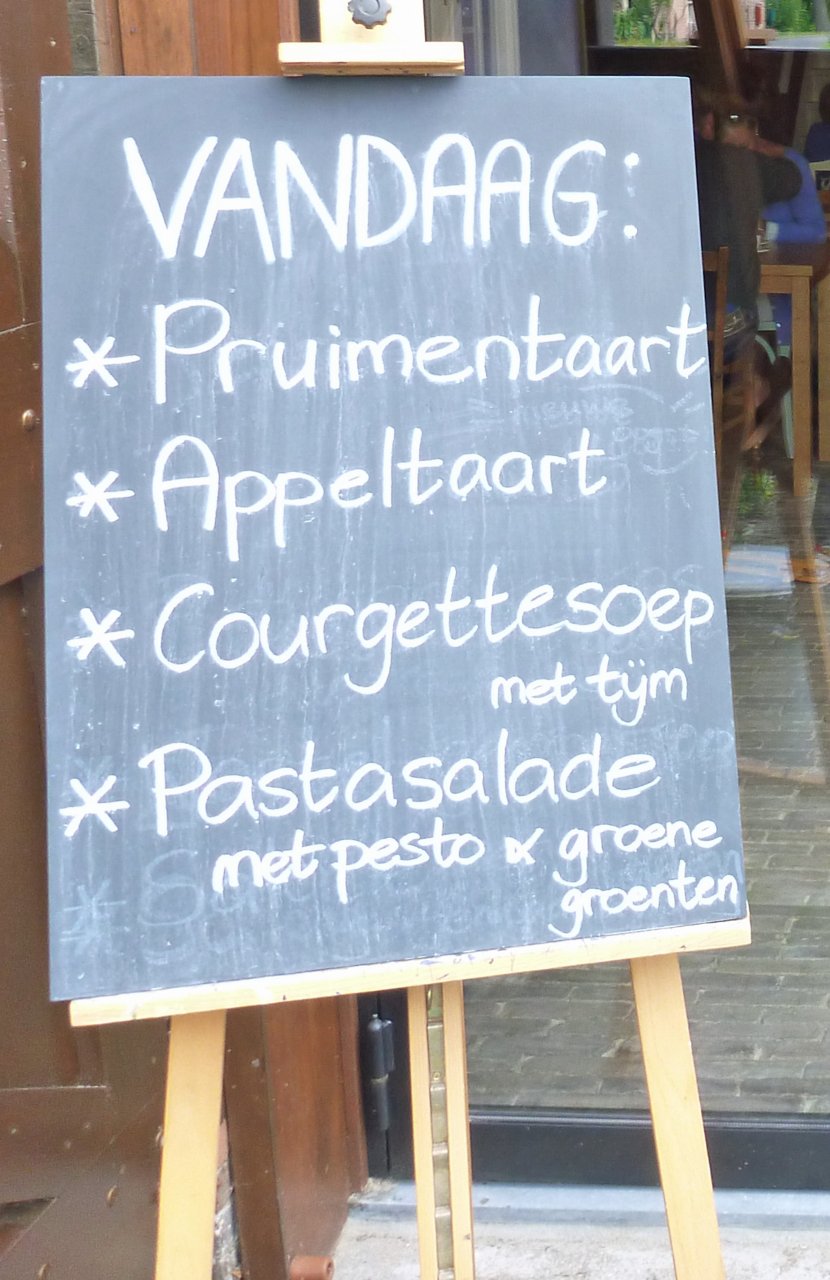 VANDAAG:
* Pruimentaart
* Appeltaart
* Courgettesoep
met tijm
* Pastasalade
met pesto & groene
groenten